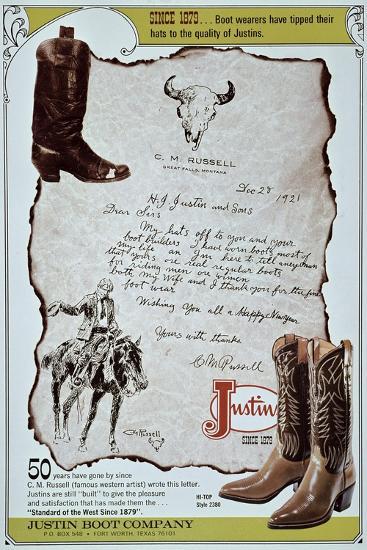 SINCE 1879... Boot wearers have tipped their
hats to the quality of Justins.
C. M. RUSSELL
GREAT FALLS, MONTANA
Dec 28 1921
H.J. Justin and Sons
Dear Sirs
My hats off to you and your
boot builders I have worn boots most of
my life an Im here to tell aney man
that yours are real regular boots
for riding men or women
both my Wife and I thank you for the fine
foot wear
Wishing You all a Happy New year
Yours with thanks
C M Russell
CM Russell
Justin
SINCE 1879
50 years have gone by since
C. M. Russell (famous western artist) wrote this letter.
Justins are still "built" to give the pleasure
and satisfaction that has made them the ...
"Standard of the West Since 1879".
HI-TOP
Style 2380
JUSTIN BOOT COMPANY
P.O. BOX 548 • FORT WORTH, TEXAS 76101